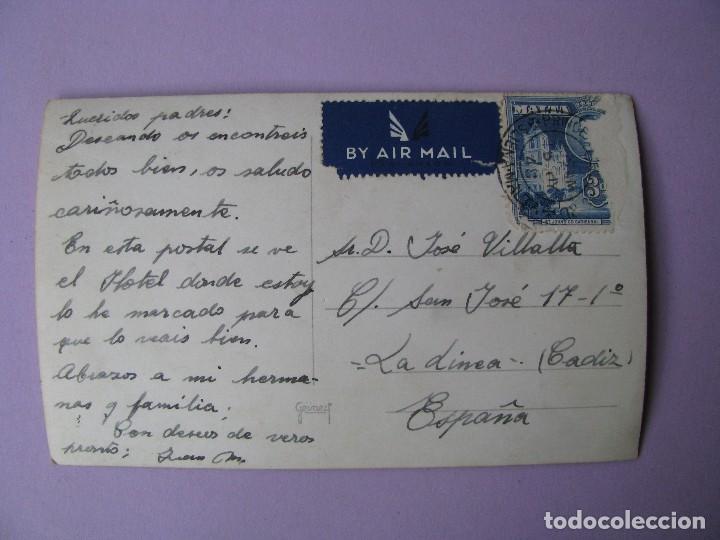 Queridos padres:
Deseando os encontreis
todos bien, os saludo
cariñosamente.
En esta postal se ve
el Hotel donde estoy
lo he marcado para
que lo veais bien.
Abrazos a mi herma-
nas y familia;
Con deseos de veros
pronto;
BY AIR MAIL
Sr. D. José Villalta
C/. San José 17-1º
=La Linea-. (Cadiz)
España
todocoleccion.net